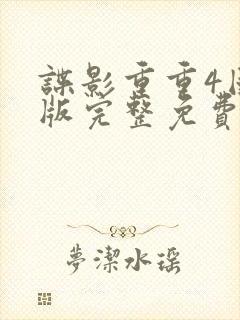 諜影重重4
版完整免費
夢潔水瑶